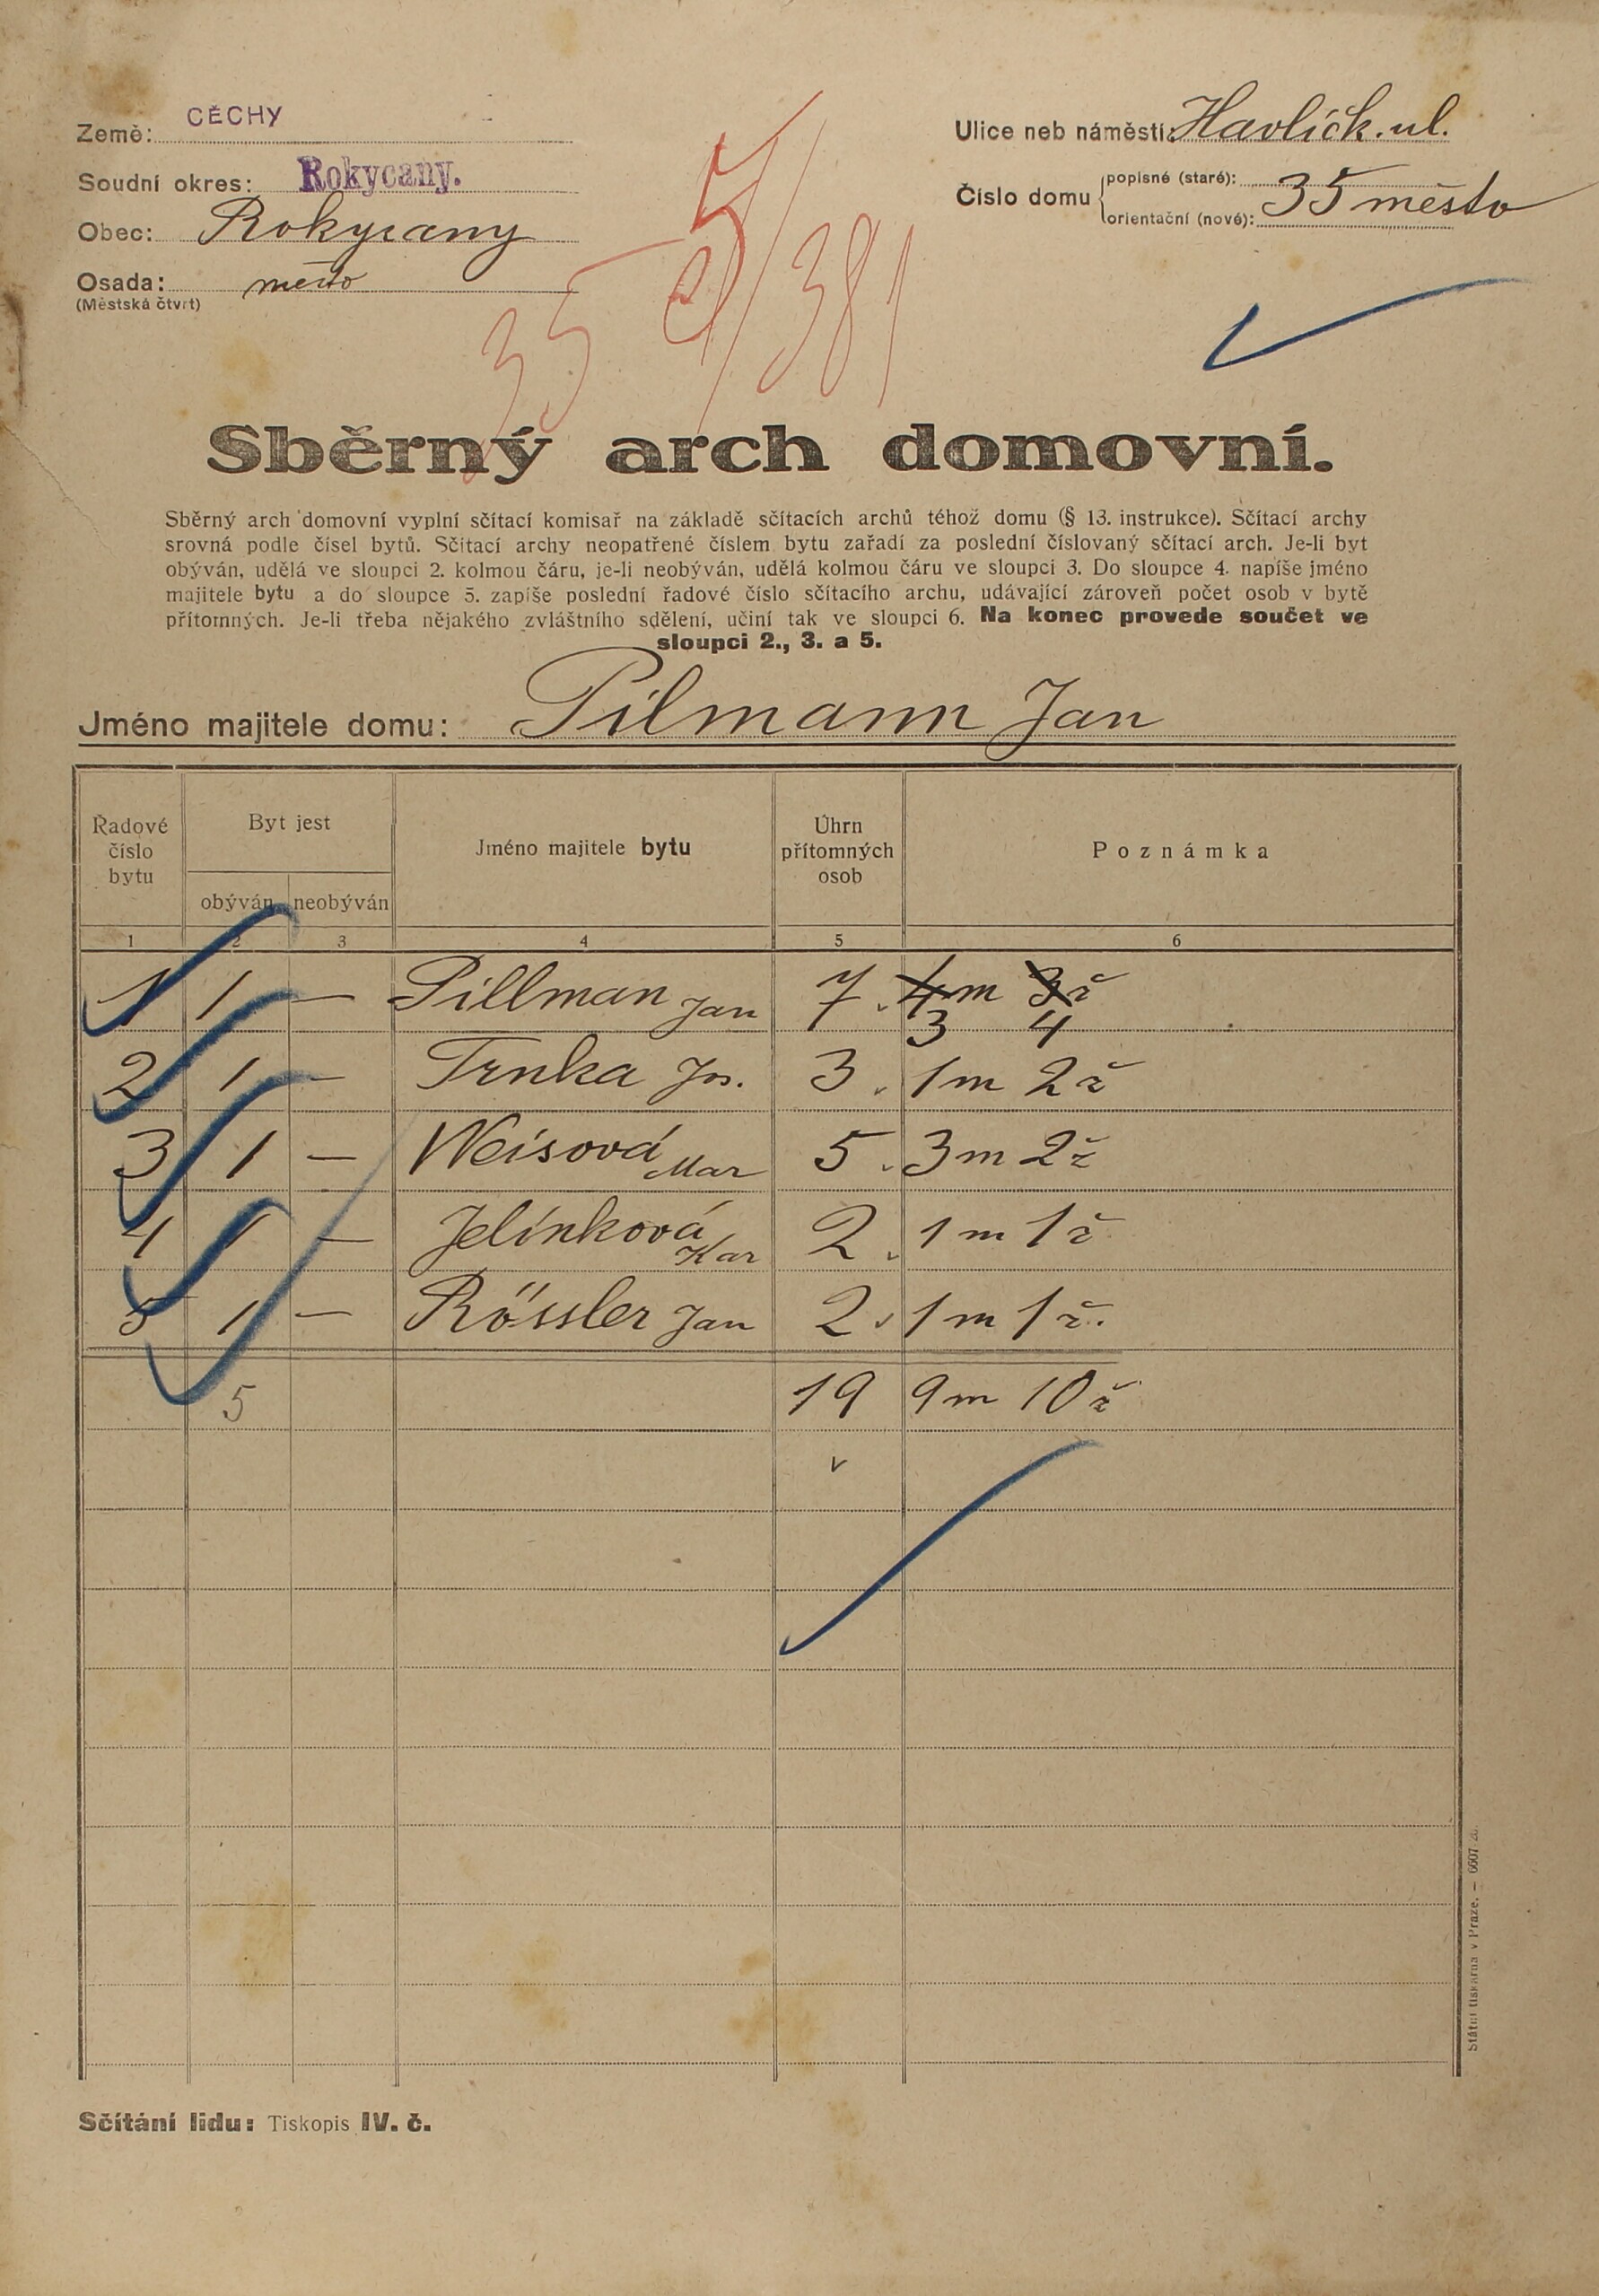 Země: ČECHY
Soudní okres: Rokycany.
Obec: Rokycany
Osada: město
(Městská čtvrt)
Ulice neb náměstí: Havlíčk. ul.
Číslo domu popisné (staré):
orientační (nové): 35 město
35 381
Sběrný arch domovní.
Sběrný arch domovní vyplní sčítací komisař na základě sčítacích archů téhož domu (§ 13. instrukce). Sčítací archy
srovná podle čísel bytů. Sčítací archy neopatřené číslem bytu zařadí za poslední číslovaný sčítací arch. Je-li byt
obýván, udělá ve sloupci 2. kolmou čáru, je-li neobýván, udělá kolmou čáru ve sloupci 3. Do sloupce 4. napíše jméno
majitele bytu a do sloupce 5. zapíše poslední řadové číslo sčítacího archu, udávající zároveň počet osob v bytě
přítomných. Je-li třeba nějakého zvláštního sdělení, učiní tak ve sloupci 6. Na konec provede součet ve
sloupci 2., 3. a 5.
Jméno majitele domu: Pilmann Jan
Řadové číslo bytu
Byt jest
obýván neobýván
Jméno majitele bytu
Úhrn přítomných osob
Poznámka
1 2 3 4 5 6
1 1 — Pillman Jan 7 4m 3ž
3 4
2 1 — Trnka Jos. 3 1m 2ž
3 1 — Weisová Mar 5 3m 2ž
4 1 — Jelínková Kar 2 1m 1ž
5 1 — Rössler Jan 2 1m 1ž.
5 19 9m 10ž
Státní tiskárna v Praze. — 6607-20.
Sčítání lidu: Tiskopis IV. č.